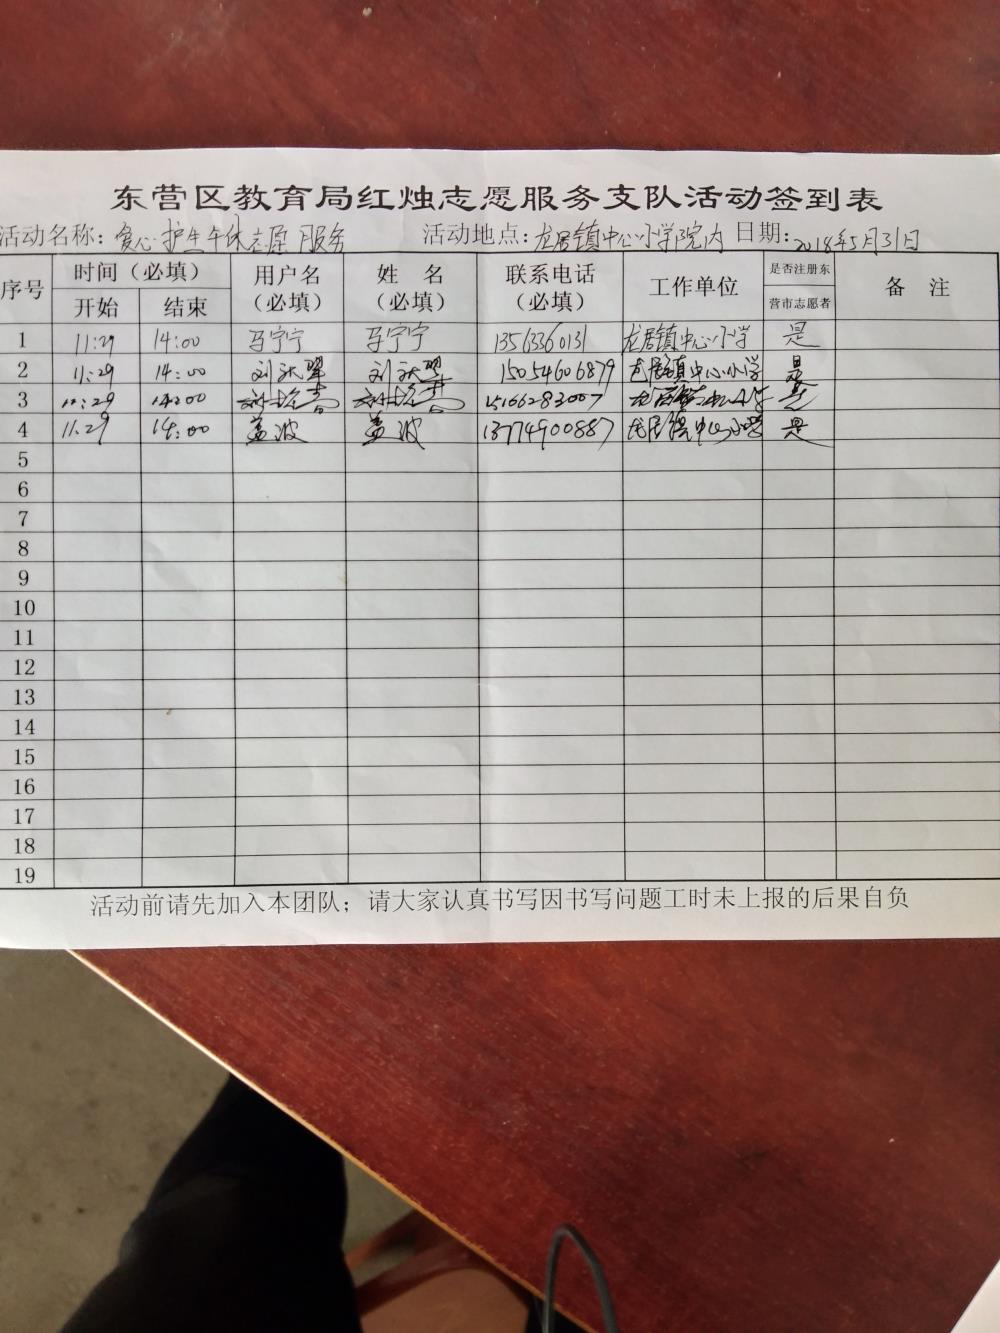 东营区教育局红烛志愿服务支队活动签到表
活动名称：爱心护生午休志愿服务 活动地点：龙居镇中心小学院内 日期：2018年5月31日
序号 时间（必填） 开始 结束 用户名（必填） 姓 名（必填） 联系电话（必填） 工作单位 是否注册东营市志愿者 备 注
1 11:29 14:00 马宁宁 马宁宁 13563360131 龙居镇中心小学 是
2 11:29 14:00 刘 刘 15054606879 龙居镇中心小学 是
3 11:29 14:00 15166283007 龙居镇中心小学 是
4 11:29 14:00 孟波 孟波 13774900887 龙居镇中心小学 是
5
6
7
8
9
10
11
12
13
14
15
16
17
18
19
活动前请先加入本团队；请大家认真书写因书写问题工时未上报的后果自负